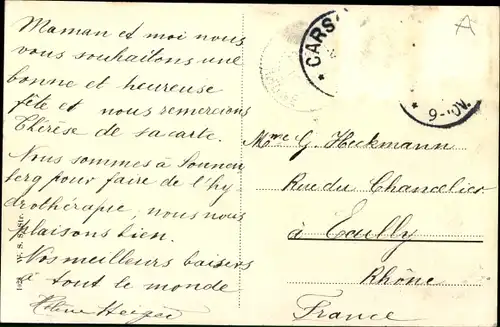 Maman et moi nous
vous souhaitons une
bonne et heureuse
fête et nous remercions
Thérèse de sa carte.
Nous sommes à Sonnen
berg pour faire de l'hy
drothérapie, nous nous
plaisons bien.
Nos meilleurs baisers
à tout le monde
Hélène
CARS
9-
Mme G. Heckmann
Rue du Chancelier
à Ecully
Rhône
France
A